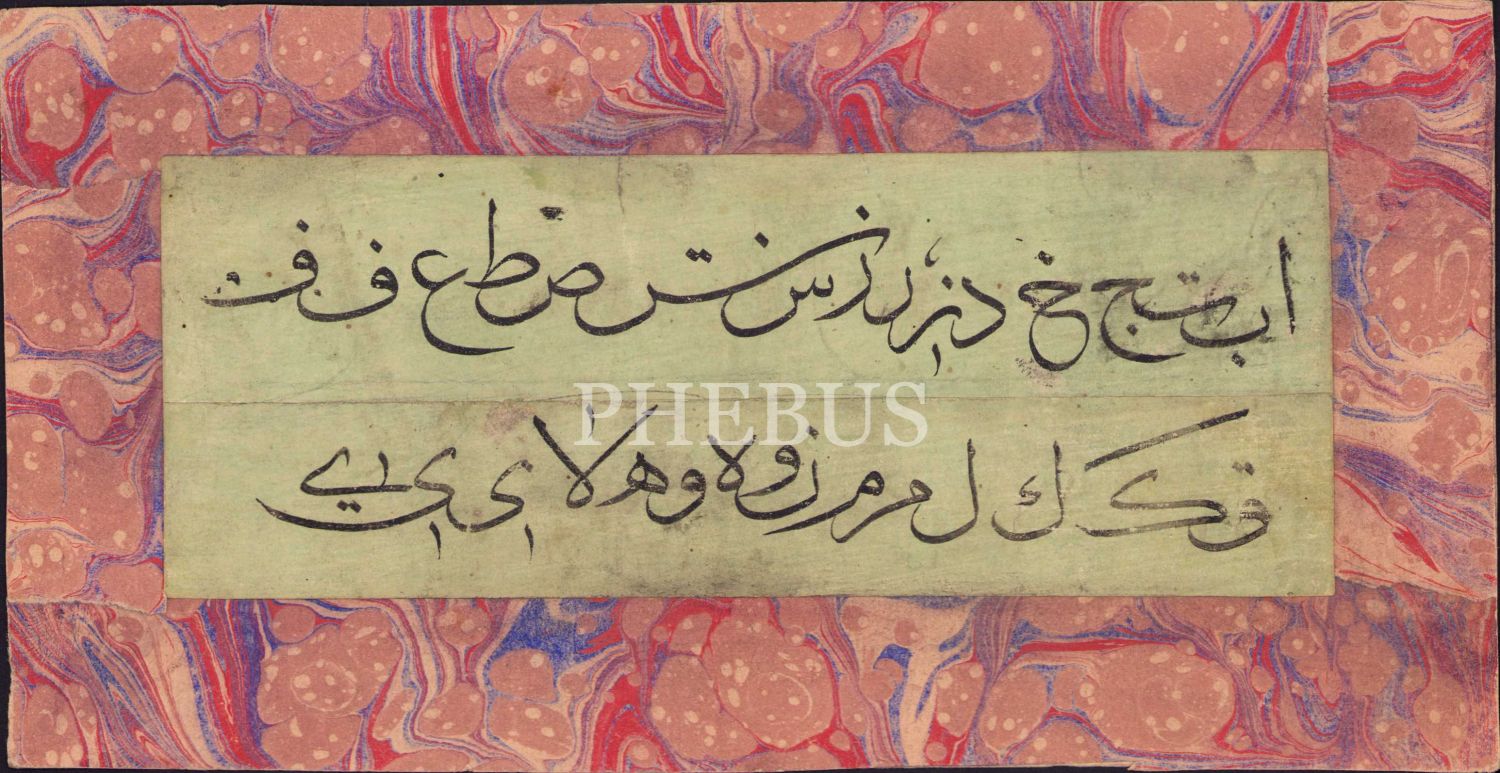 ا ب ت ج خ د ر ر ز س ش ص ط ع ف ف
PHEBUS
ق ك ك ل م م ن و ه و ه لا ى ى ي